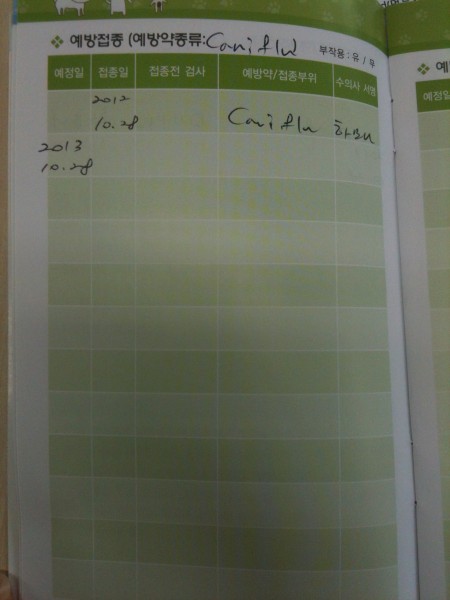 예방접종 (예방약종류: Caniflu 부작용 : 유 / 무
예정일 접종일 접종전 검사 예방약/접종부위 수의사 서명
2012
10.28 Caniflu
2013
10.28
예
예정일